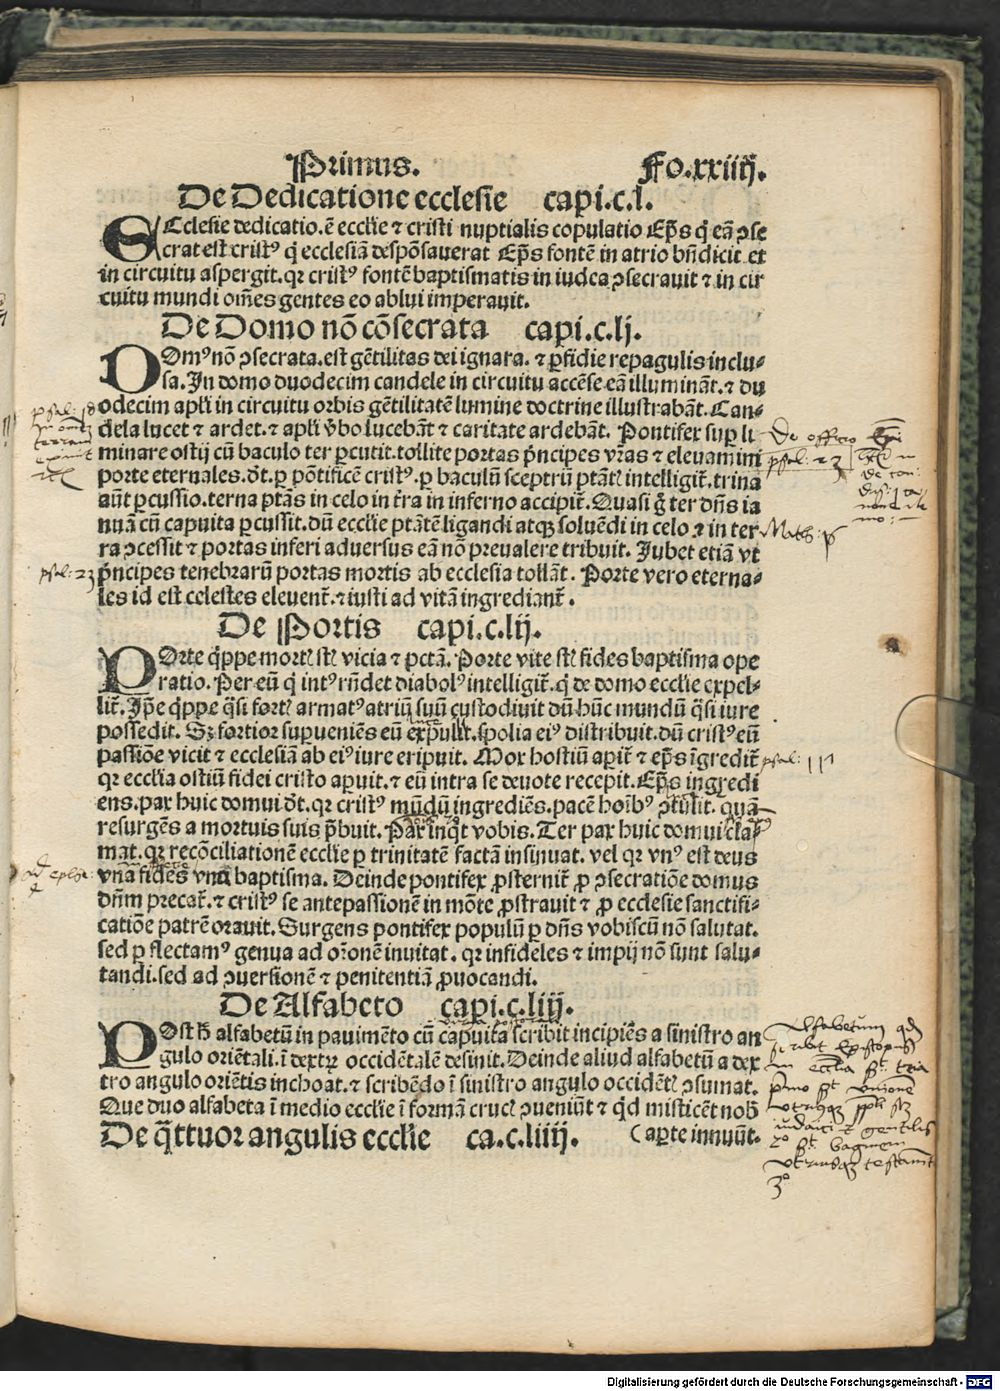 Primus. Fo.xxiiij.
De Dedicatione ecclesie capi.c.l.
ECclesie dedicatio.ē eccl'ie ⁊ cristi nuptialis copulatio Ep̄s q̇ eā ꝯse
crat est crist⁹ q̇ ecclesiā despōsauerat Ep̄s fontē in atrio bn̄dicit et
in circuitu aspergit.qꝛ crist⁹ fontē baptismatis in iudea ꝯsecrauit ⁊ in cir
cuitu mundi om̄es gentes eo ablui imperauit.
De Domo nō cōsecrata capi.c.lj.
DOm⁹ nō ꝯsecrata.est gētilitas dei ignara. ⁊ ꝑfidie repagulis inclu⸗
sa.In domo duodecim candele in circuitu accēse eā illumināt.⁊ du
odecim apl'i in circuitu orbis gētilitatē lumine doctrine illustrabāt.Can⸗
dela lucet ⁊ ardet.⁊ apl'i v̄bo lucebāt ⁊ caritate ardebāt. Pontifex suꝑ li
minare ostij cū baculo ter ꝑcutit.tollite portas p̄ncipes vr̄as ⁊ eleuamini
porte eternales.d̄t.ꝑ pōtificē crist⁹.ꝑ baculū sceptrū ptātꝭ intelligit̄.trina
aūt ꝑcussio.terna ptās in celo in t̄ra in inferno accipit̄.Quasi g̊ ter dn̄s ia
nuā cū capuita ꝑcussit.dū eccl'ie ptātē ligandi atqꝫ soluēdi in celo ⁊ in ter
ra ꝯcessit ⁊ portas inferi aduersus eā nō preualere tribuit. Jubet etiā vt
p̄ncipes tenebrarū portas mortis ab ecclesia tollāt. Porte vero eterna⸗
les id est celestes eleuent̄.⁊ iusti ad vitā ingrediant̄.
De Portis capi.c.lij.
POrte q̇ppe mortꝭ stꝭ vicia ⁊ pctā. Porte vite stꝭ fides baptisma ope
ratio. Per eū q̇ int⁹ rn̄det diabol⁹ intelligit̄.q̇ de domo eccl'ie expel⸗
lit̄.Ip̄e q̇ppe q̄si fortꝭ armat⁹ atriū suū custodiuit dū hūc mundū q̄si iure
possedit. Sꝫ fortior suꝑueniēs eū expulit.spolia ei⁹ distribuit.dū crist⁹ eū
passiōe vicit ⁊ ecclesiā ab ei⁹ iure eripuit. Mox hostiū aꝑit̄ ⁊ ep̄s īgredit̄
qꝛ eccl'ia ostiū fidei cristo aꝑuit.⁊ eū intra se deuote recepit. Ep̄s ingredi
ens.pax huic domui d̄t.qꝛ crist⁹ mūdū ingrediēs.pacē hoīb⁹ ꝯtulit. quā
resurgēs a mortuis suis p̄buit. Pax inq̇t vobis. Ter pax huic domui cla
mat.qꝛ recōciliationē eccl'ie ꝑ trinitatē factā insinuat. vel qꝛ vn⁹ est deus
vna fides vnū baptisma. Deinde pontifex ꝓsternit̄ ꝓ ꝯsecratiōe domus
dn̄m precat̄.⁊ crist⁹ se ante passionē in mōte ꝓstrauit ⁊ ꝓ ecclesie sanctifi⸗
catiōe patrē orauit. Surgens pontifex populū ꝑ dn̄s vobiscū nō salutat.
sed ꝑ flectam⁹ genua ad or̄onē inuitat. qꝛ infideles ⁊ impij nō sunt salu⸗
tandi.sed ad ꝯuersionē ⁊ penitentiā ꝓuocandi.
De Alfabeto capi.c.liij.
POst h̄ alfabetū in pauimēto cū capuita scribit incipiēs a sinistro an
gulo oriētali.ī dextꝝ occidētalē desinit. Deinde aliud alfabetū a dex
tro angulo oriētis inchoat.⁊ scribēdo ī sinistro angulo occidētꝭ ꝯsumat.
Que duo alfabeta ī medio eccl'ie ī formā crucꝭ ꝯueniūt ⁊ q̇d misticēt nob̄
De q̄ttuor angulis eccl'ie ca.c.liiij. (aꝑte innuūt.
psal: 18
in omnē
terram
exiuit
De officio Epi
psal: 23
Math: 16
psal: 23
psal:
ad ephe:
Alfabetum qd
scribit Episcopus
in eccl'ia
Digitalisierung gefördert durch die Deutsche Forschungsgemeinschaft - DFG